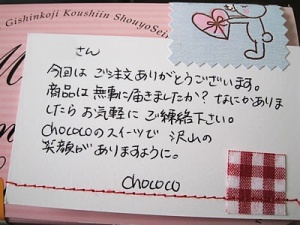 Gishinkoji Koushiin ShouyoSei
さん
今回は ご注文 ありがとうございます。
商品は 無事に 届きましたか？ なにかありま
したら お気軽に ご連絡下さい。
chococoのスイーツで 沢山の
笑顔が ありますように。
chococo